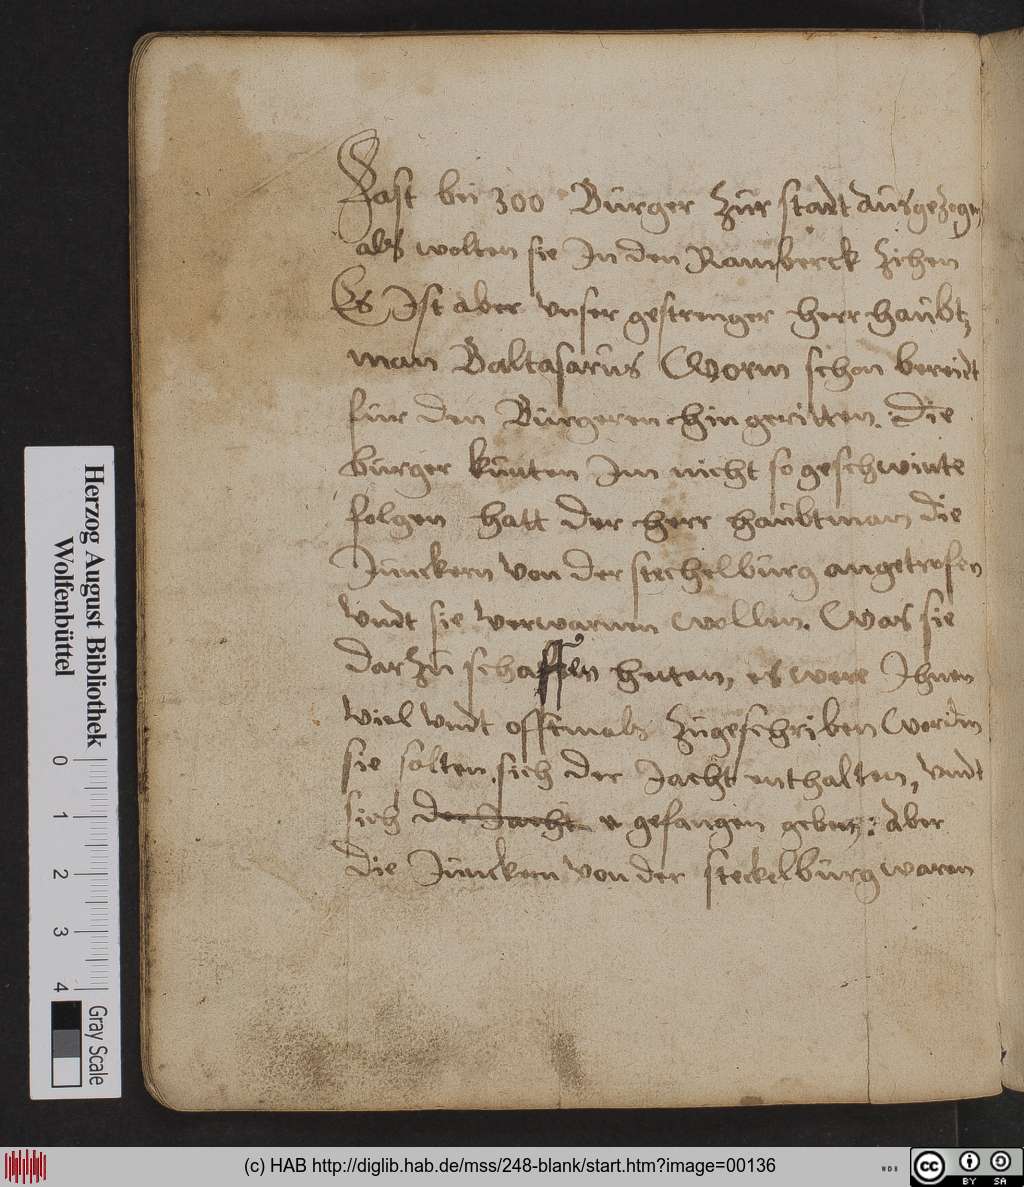 Fast bei 300 Bürger zur stadt ausgezogen
als wolten sie In den Ramberck zihen
Es Ist aber unser gestrenger herr haubt,
man Baltasarus Worm schon bereidt
für den Bürgeren hin geritten. Die
bürger kunten Im nicht so geschwinte
folgen hatt der herr haubtman die
Junckern von der stechelburg angetrofen
vndt sie verwarnen wollen. Was sie
darzu schaffen hetten, es were Ihnen
viel vndt offtmals zugeschriben worden
sie solten sich der Jacht enthalten, vndt
sich der Jacht gefangen geben: aber
die Junckern von der steckelburg waren
Herzog August Bibliothek
Wolfenbüttel
0 1 2 3 4
Gray Scale
(c) HAB http://diglib.hab.de/mss/248-blank/start.htm?image=00136
WDB
cc BY SA